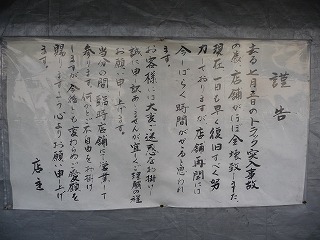 謹告
去る七月五日のトラック突入事故
の為、店舗がほぼ全壊致しました
現在一日も早く復旧すべく努
力しておりますが店舗再開には
今しばらく時間がかかると思われ
ます。
お客様には大変ご迷惑をお掛けし
誠に申し訳ありませんが宜しくご理解の程
お願い申し上げます。
当分の間臨時店舗にて営業して
参ります。何かとご不自由をお掛け
しますが今後とも変わらぬご愛顧を
賜りますよう心よりお願い申し上げ
ます。
店主